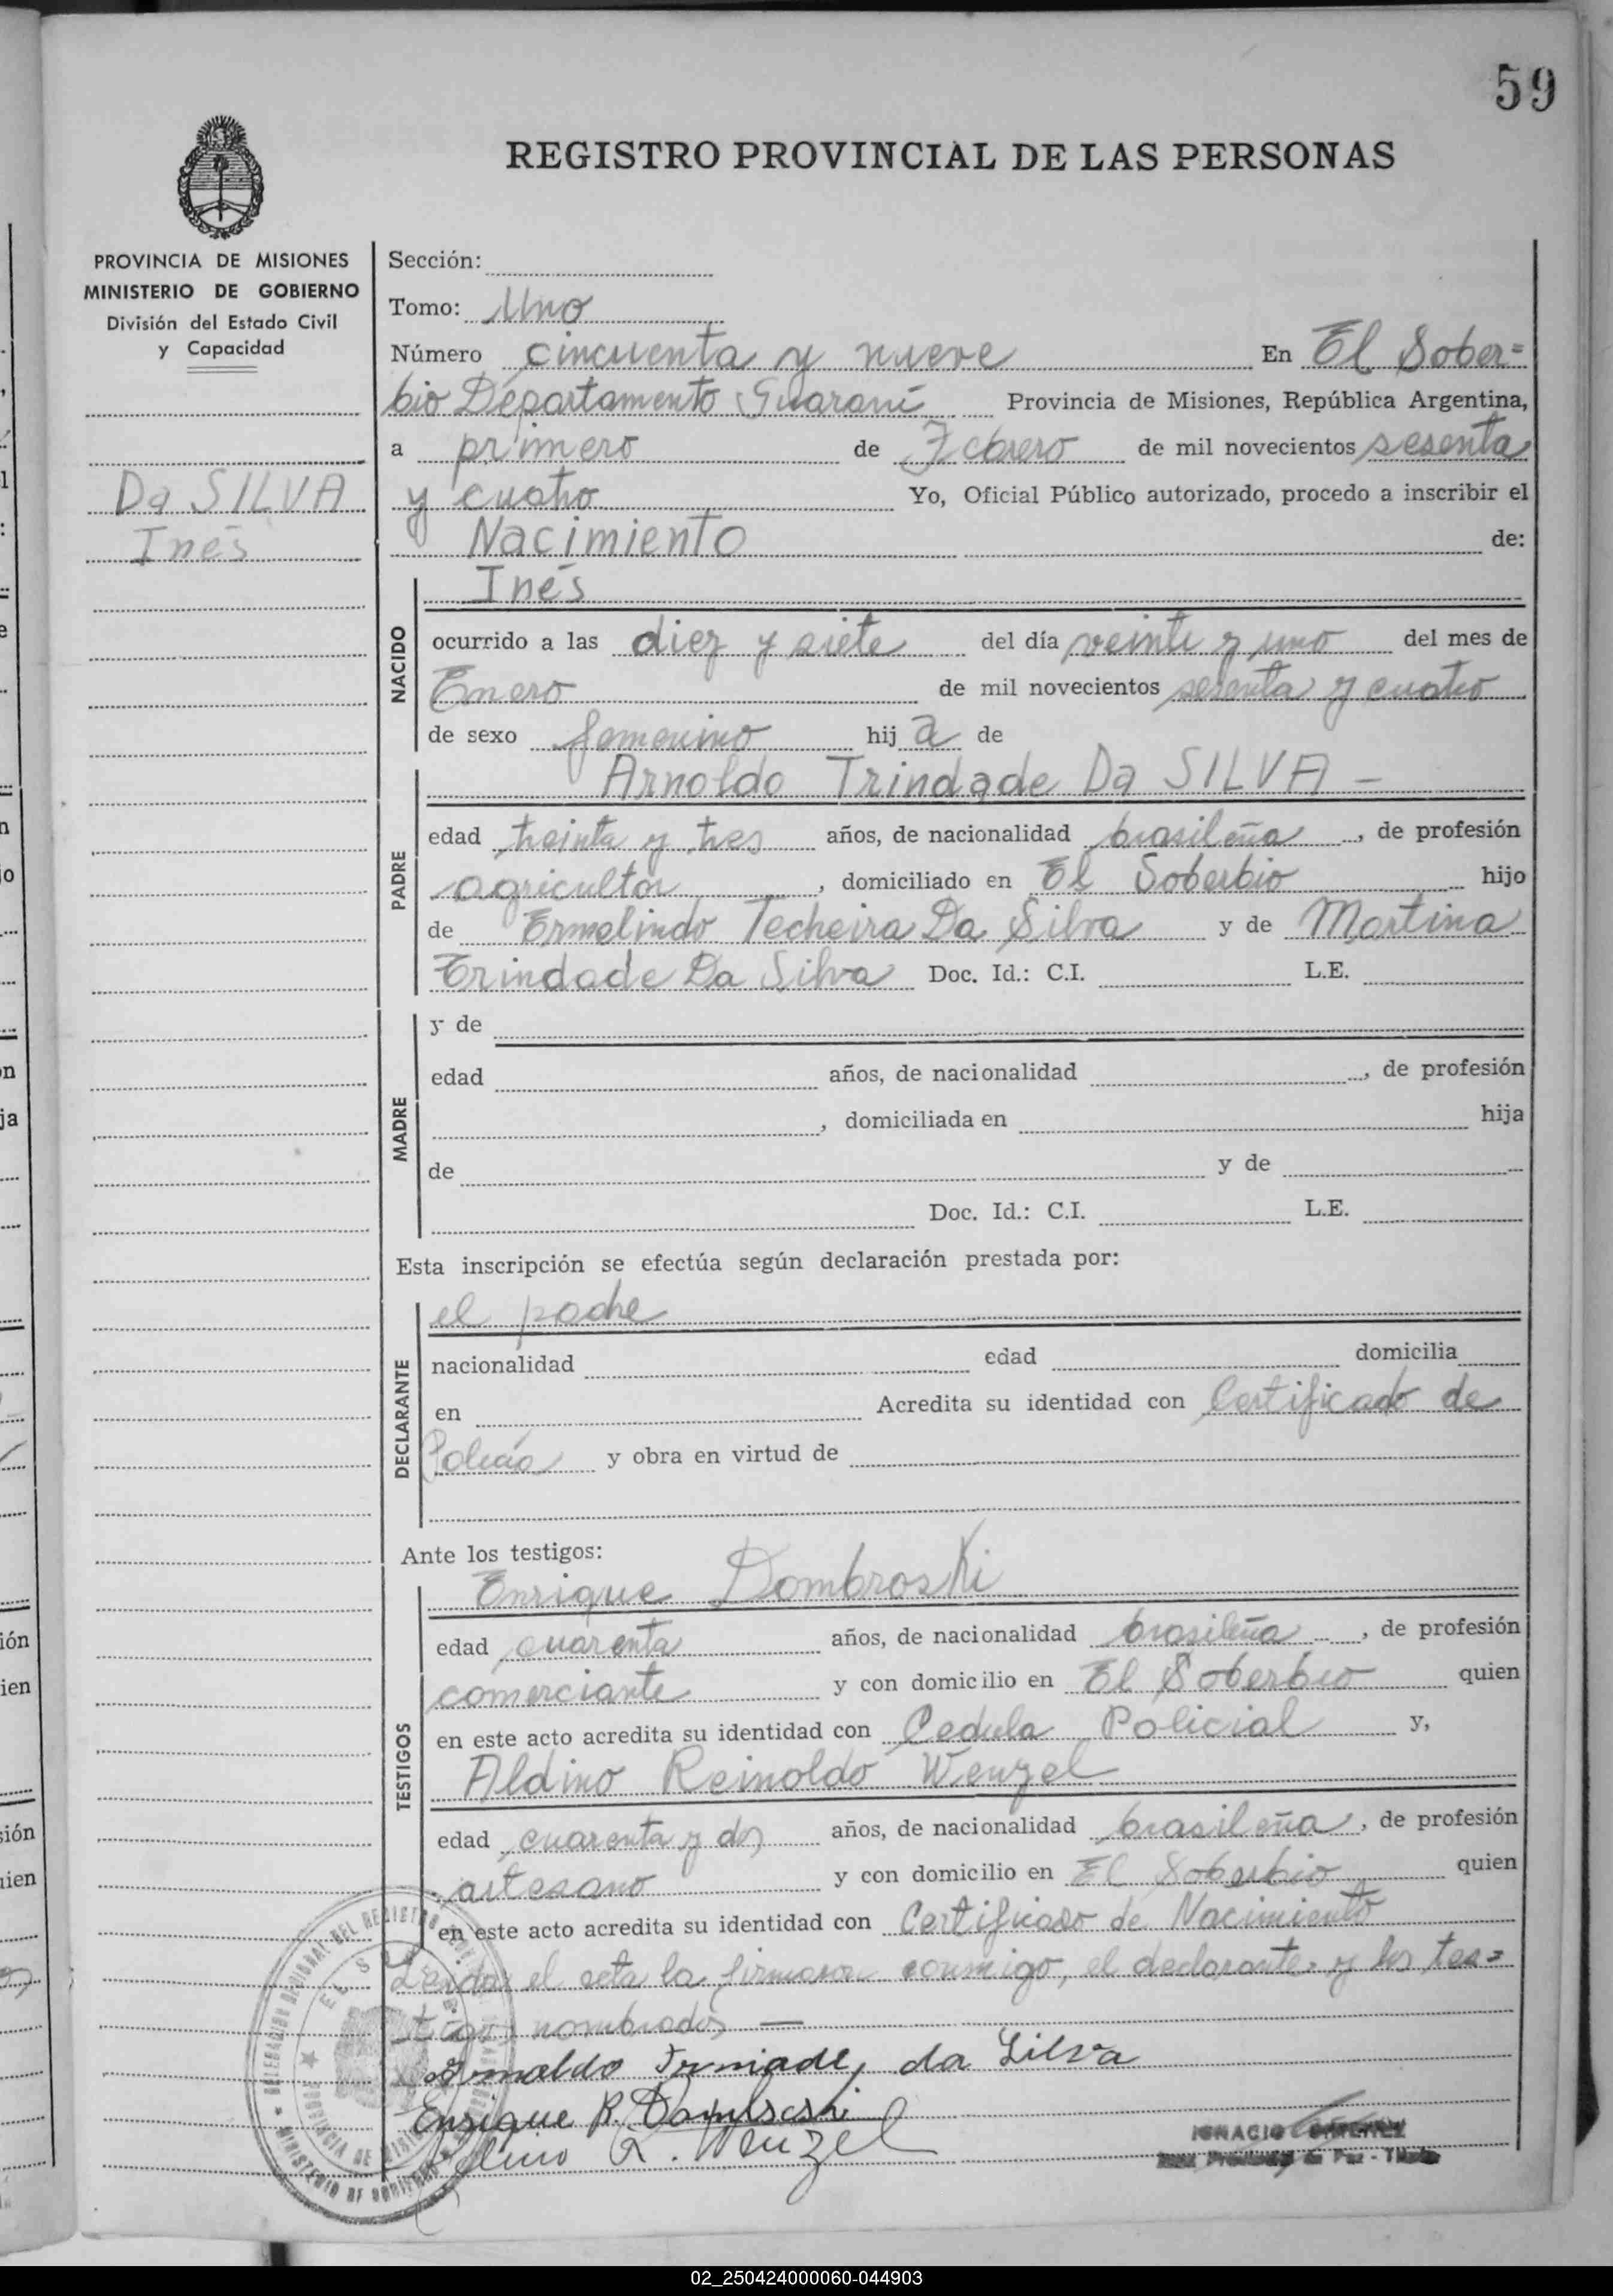 59
REGISTRO PROVINCIAL DE LAS PERSONAS
PROVINCIA DE MISIONES
MINISTERIO DE GOBIERNO
División del Estado Civil
y Capacidad
Da SILVA
Inés
Sección:
Tomo: Uno
Número cincuenta y nueve En El Sober=
bio Departamento Guaraní Provincia de Misiones, República Argentina,
a primero de Febrero de mil novecientos sesenta
y cuatro Yo, Oficial Público autorizado, procedo a inscribir el
Nacimiento de:
NACIDO
Inés
ocurrido a las diez y siete del día veinte y uno del mes de
Enero de mil novecientos sesenta y cuatro
de sexo femenino hij a de
PADRE
Arnoldo Trindade Da SILVA —
edad treinta y tres años, de nacionalidad brasileña, de profesión
agricultor, domiciliado en El Soberbio hijo
de Ermelindo Techeira Da Silva y de Martina
Trindade Da Silva Doc. Id.: C.I. L.E.
MADRE
y de
edad años, de nacionalidad , de profesión
, domiciliada en hija
de y de
Doc. Id.: C.I. L.E.
Esta inscripción se efectúa según declaración prestada por:
DECLARANTE
el padre
nacionalidad edad domicilia
en Acredita su identidad con Certificado de
Policía y obra en virtud de
Ante los testigos:
TESTIGOS
Enrique Dombroski
edad cuarenta años, de nacionalidad brasileña, de profesión
comerciante y con domicilio en El Soberbio quien
en este acto acredita su identidad con Cedula Policial y,
Aldino Reinoldo Wenzel
edad cuarenta y dos años, de nacionalidad brasileña, de profesión
artesano y con domicilio en El Soberbio quien
en este acto acredita su identidad con Certificado de Nacimiento
Leida el acta la firmaron conmigo, el declarante y los tes=
tigos nombrados —
da Silva
Enrique R.
R. Wenzel
IGNACIO
de Paz -
02_250424000060-044903